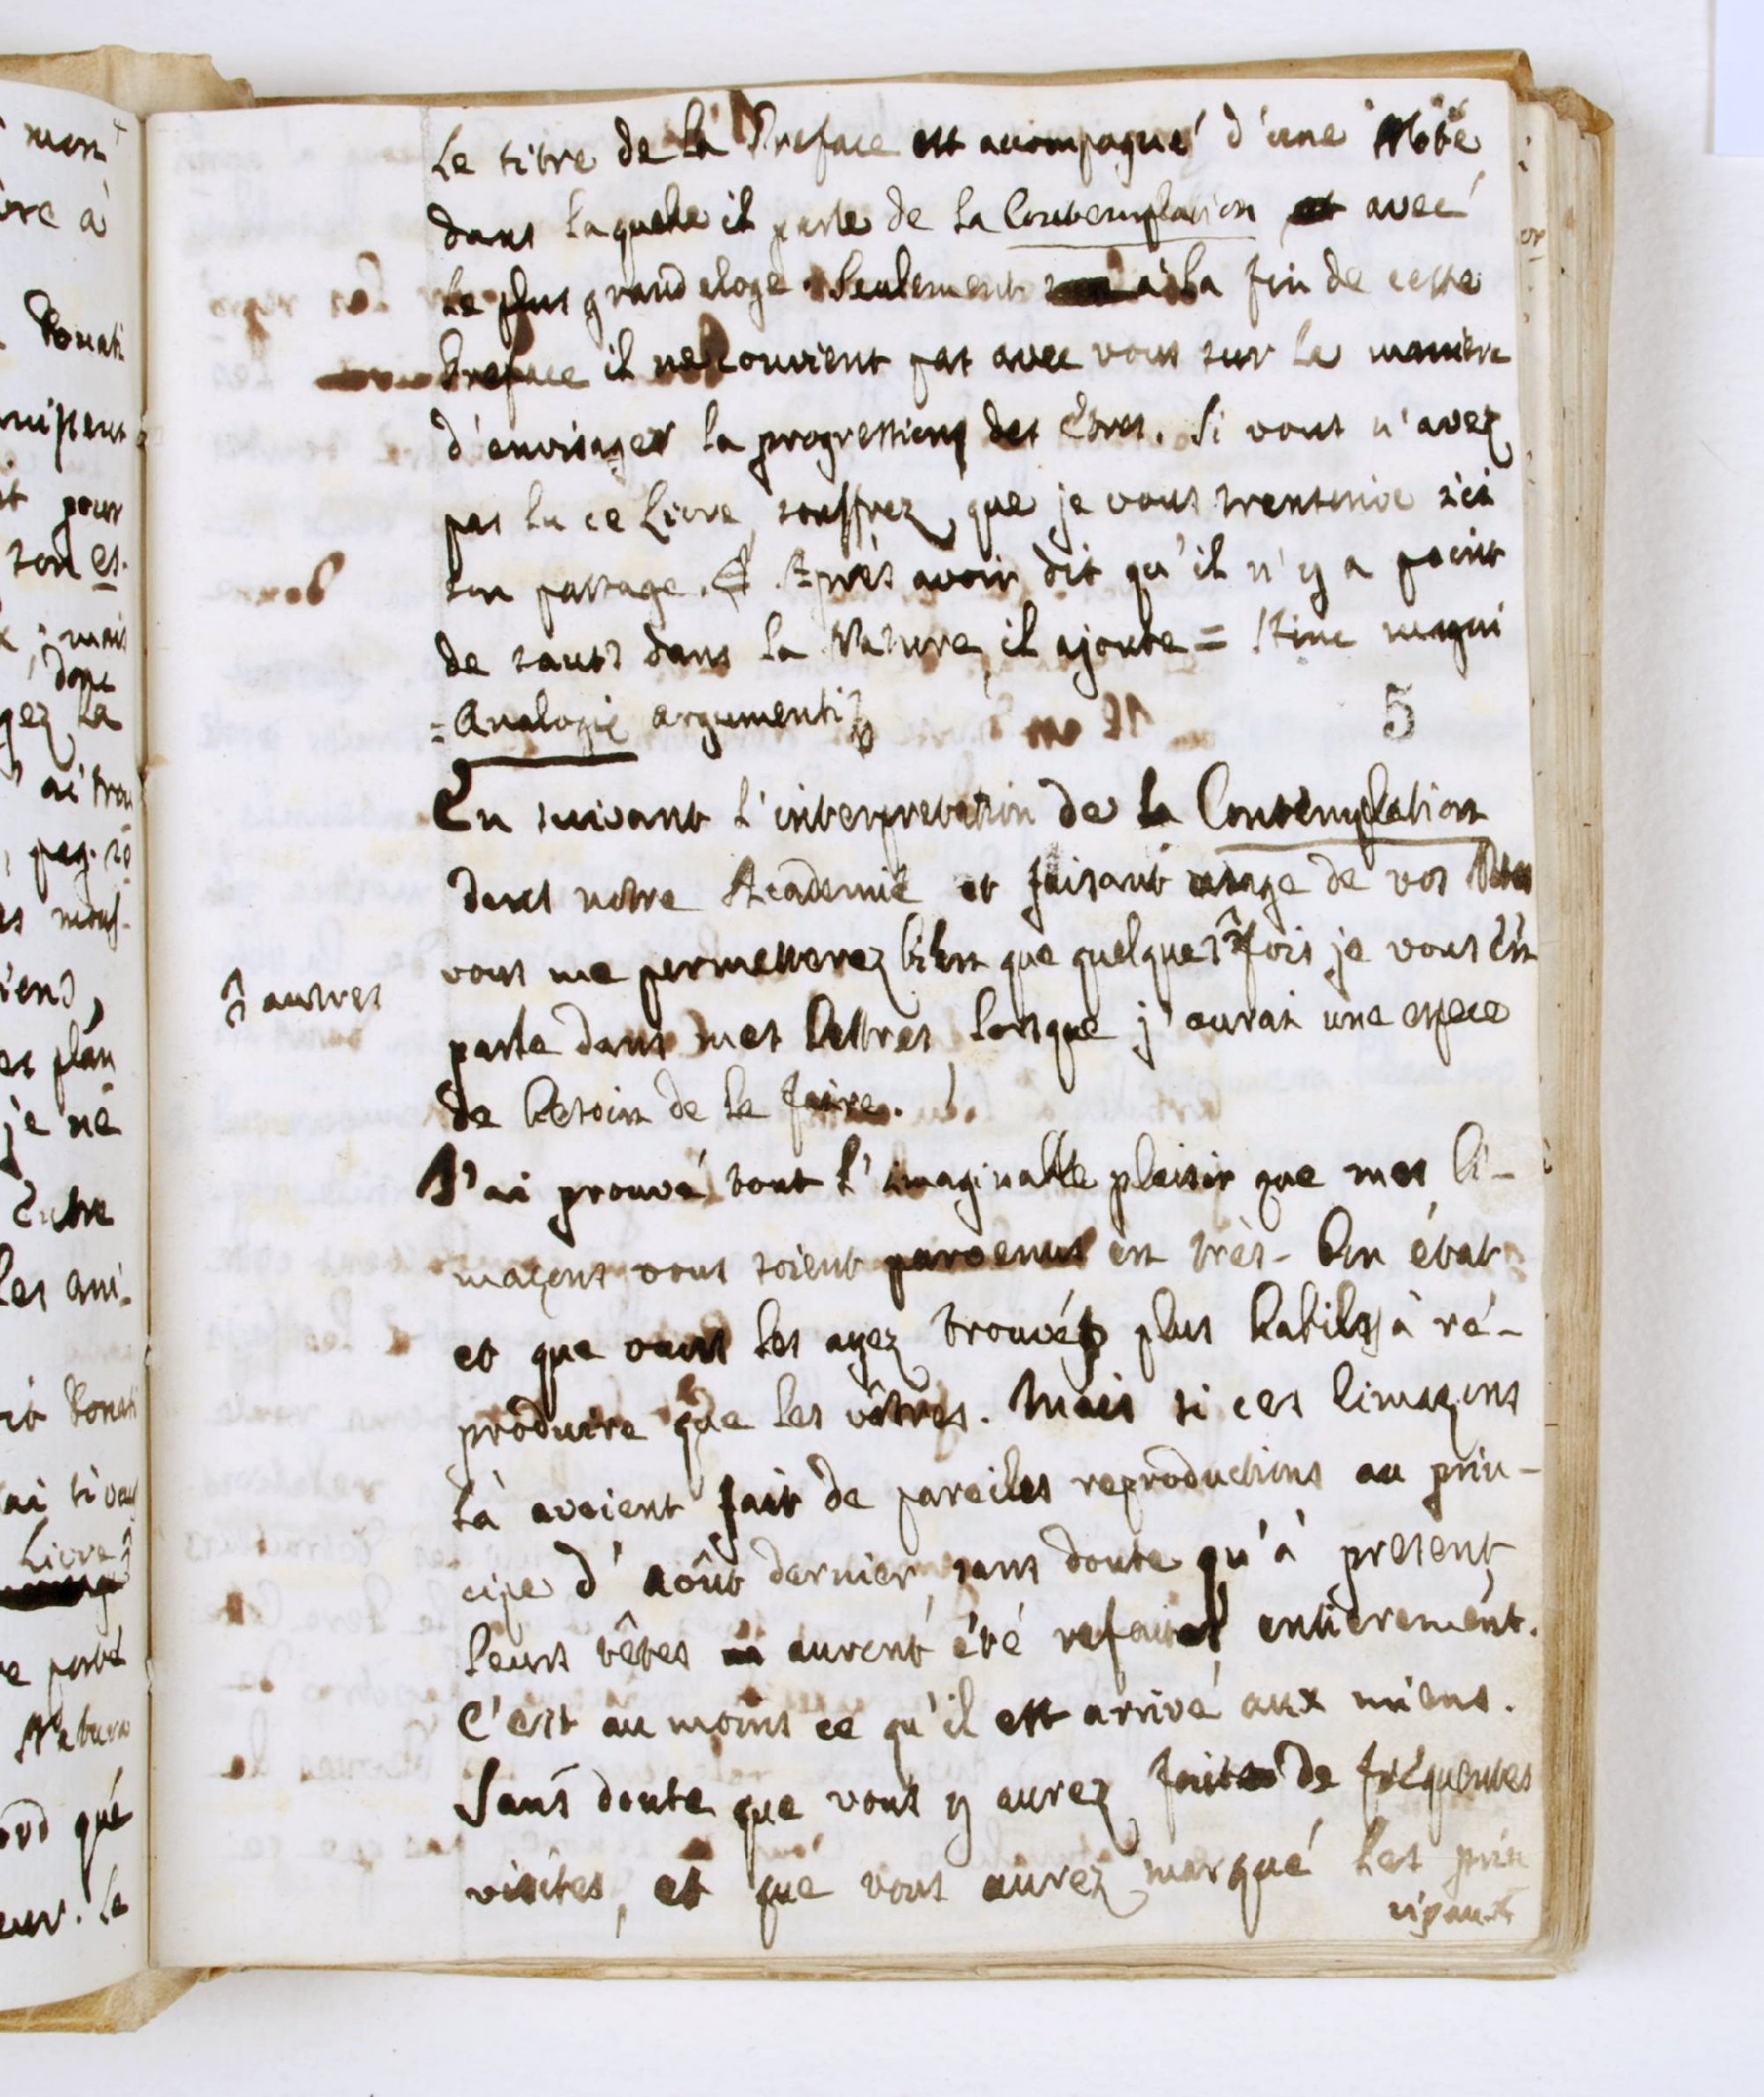 Le titre de la Preface est acompagné d'une Note
dans laquelle il parle de la Contemplation avec
le plus grand eloge. Seulement à la fin de cette
Preface il ne convient pas avec vous sur la maniere
d'envisager la progressions des Etres. Si vous n'avez
pas lu ce Livre, souffrez que je vous transcrive ici
son passage. Après avoir dit qu'il n'y a point
de sauts dans la Nature, il ajoute = Hinc magni
= Analogiæ argumenti
5
En suivant l'interpretation de la Contemplation
dans notre Academie et faisant usage de vos
vous me permetterez bien que quelques fois je vous en
autres
parle dans mes lettres lorsque j'aurai une espece
de besoin de le faire.
J'ai prouvé tout l'imaginable plaisir que mes li-
maçons vous soient parvenus en très-bon état
et que vous les ayez trouvés plus habiles à ré-
produire que les vôtres. Mais si ces limaçons
là avoient fait de pareiles reproductions au prin-
cipe d'août dernier, sans doute qu'à present
leurs têtes auront été refaites entierement.
C'est au moins ce qu'il est arrivé aux miens.
Sans doute que vous y aurez fait de fréquentes
visites, et que vous aurez marqué les prin
cipaux
mon
vre à
Bonati
pour
son es-
; mais
donc
gez la
ai trou
, pag. 20
iens,
plan
je ne
Entre
les ani-
Bonati
Livre
porté
Natura
que
eur. Le